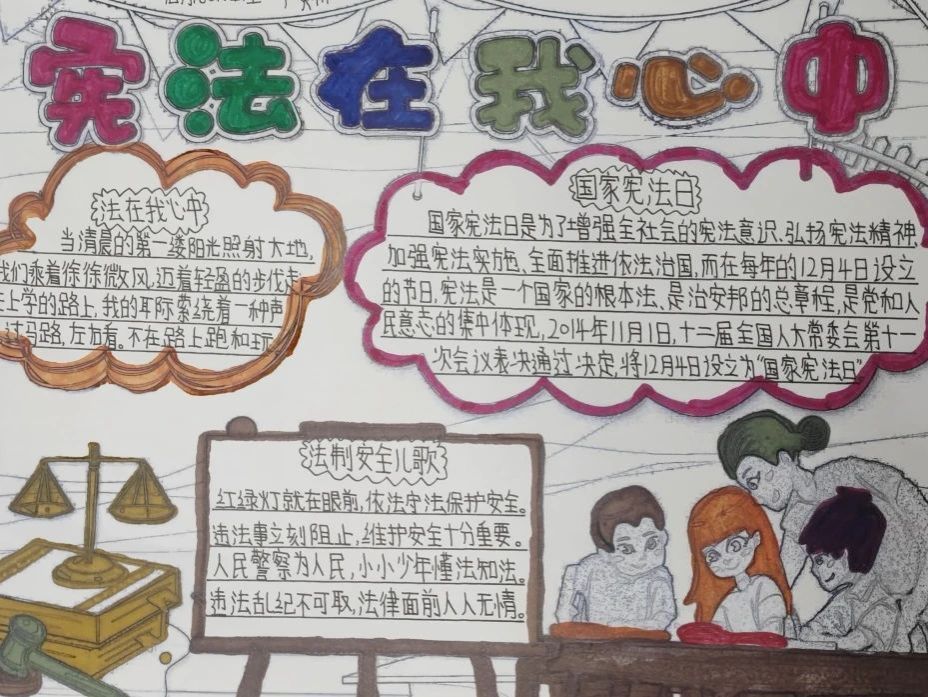 宪法在我心中
法在我心中
当清晨的第一缕阳光照射大地,
我们乘着徐徐微风,迈着轻盈的步伐走
上学的路上,我的耳际萦绕着一种声
过马路,左右看。不在路上跑和玩
国家宪法日
国家宪法日是为了增强全社会的宪法意识、弘扬宪法精神、
加强宪法实施、全面推进依法治国,而在每年的12月4日设立
的节日,宪法是一个国家的根本法、是治安邦的总章程,是党和人
民意志的集中体现,2014年11月1日,十二届全国人大常委会第十一
次会议表决通过决定,将12月4日设立为“国家宪法日”
法制安全儿歌
红绿灯就在眼前,依法守法保护安全。
违法事立刻阻止,维护安全十分重要。
人民警察为人民,小小少年懂法知法。
违法乱纪不可取,法律面前人人无情。